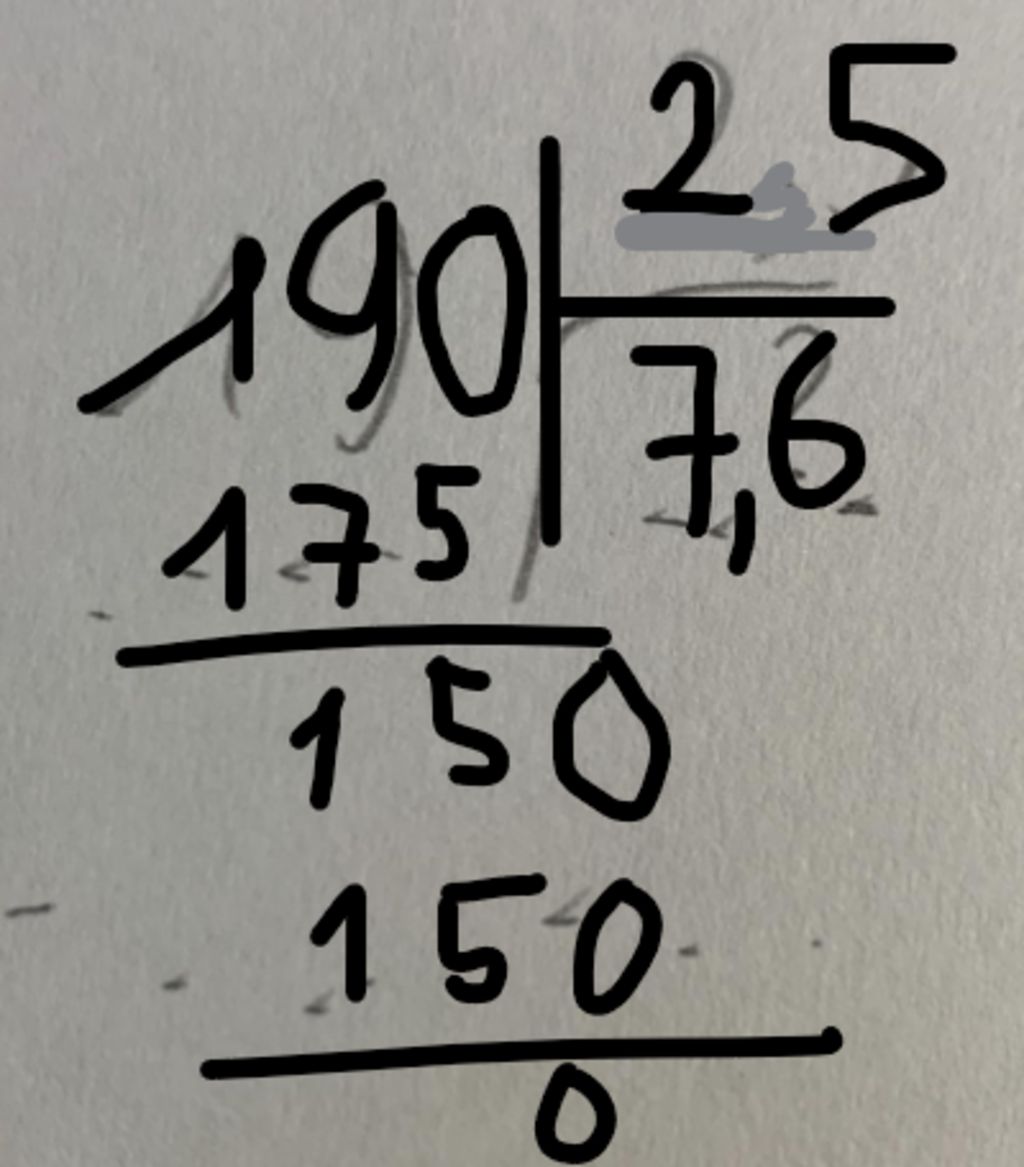 25
190
7,6
175
150
150
0